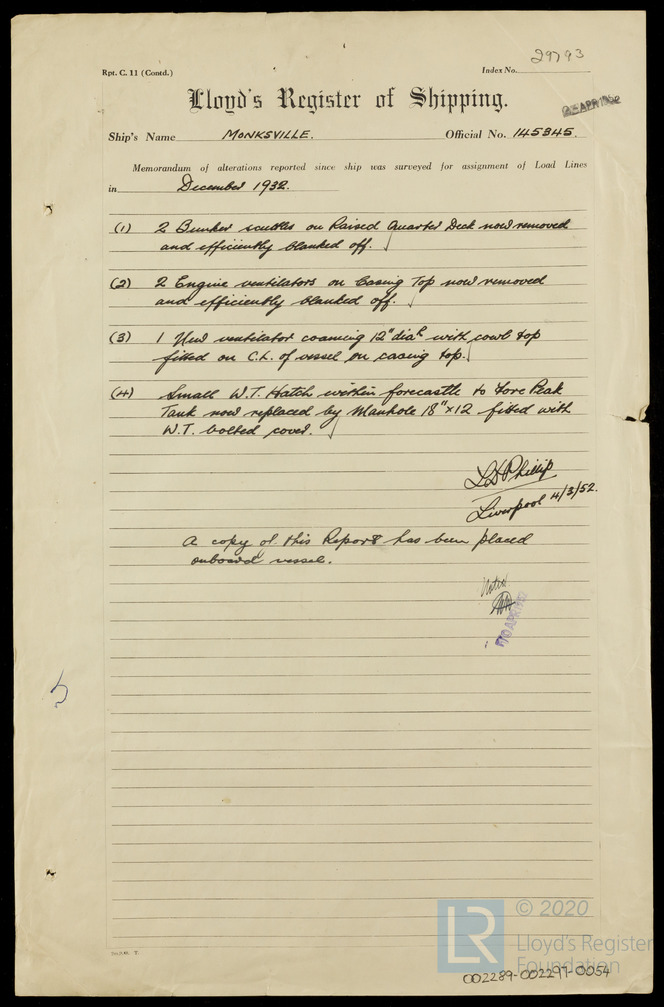 29793
Rpt. C. 11 (Contd.)
Index No.
Lloyd's Register of Shipping.
APR 1952
Ship's Name MONKSVILLE. Official No. 145345.
Memorandum of alterations reported since ship was surveyed for assignment of Load Lines
in December 1932.
(1) 2 Bunker scuttles on Raised Quarter Deck now removed
and efficiently blanked off.
(2) 2 Engine ventilators on Casing Top now removed
and efficiently blanked off.
(3) 1 New ventilator coaming 12" diar with cowl top
fitted on C.L. of vessel on casing top.
(4) Small W.T. Hatch within forecastle to Fore Peak
Tank now replaced by Manhole 18" x 12 fitted with
W.T. bolted cover.
Phillip
Liverpool 4/3/52.
A copy of this Report has been placed
onboard vessel.
Noted
10 APR 1952
© 2020
LR
Lloyd's Register
Foundation
002289-002297-0054